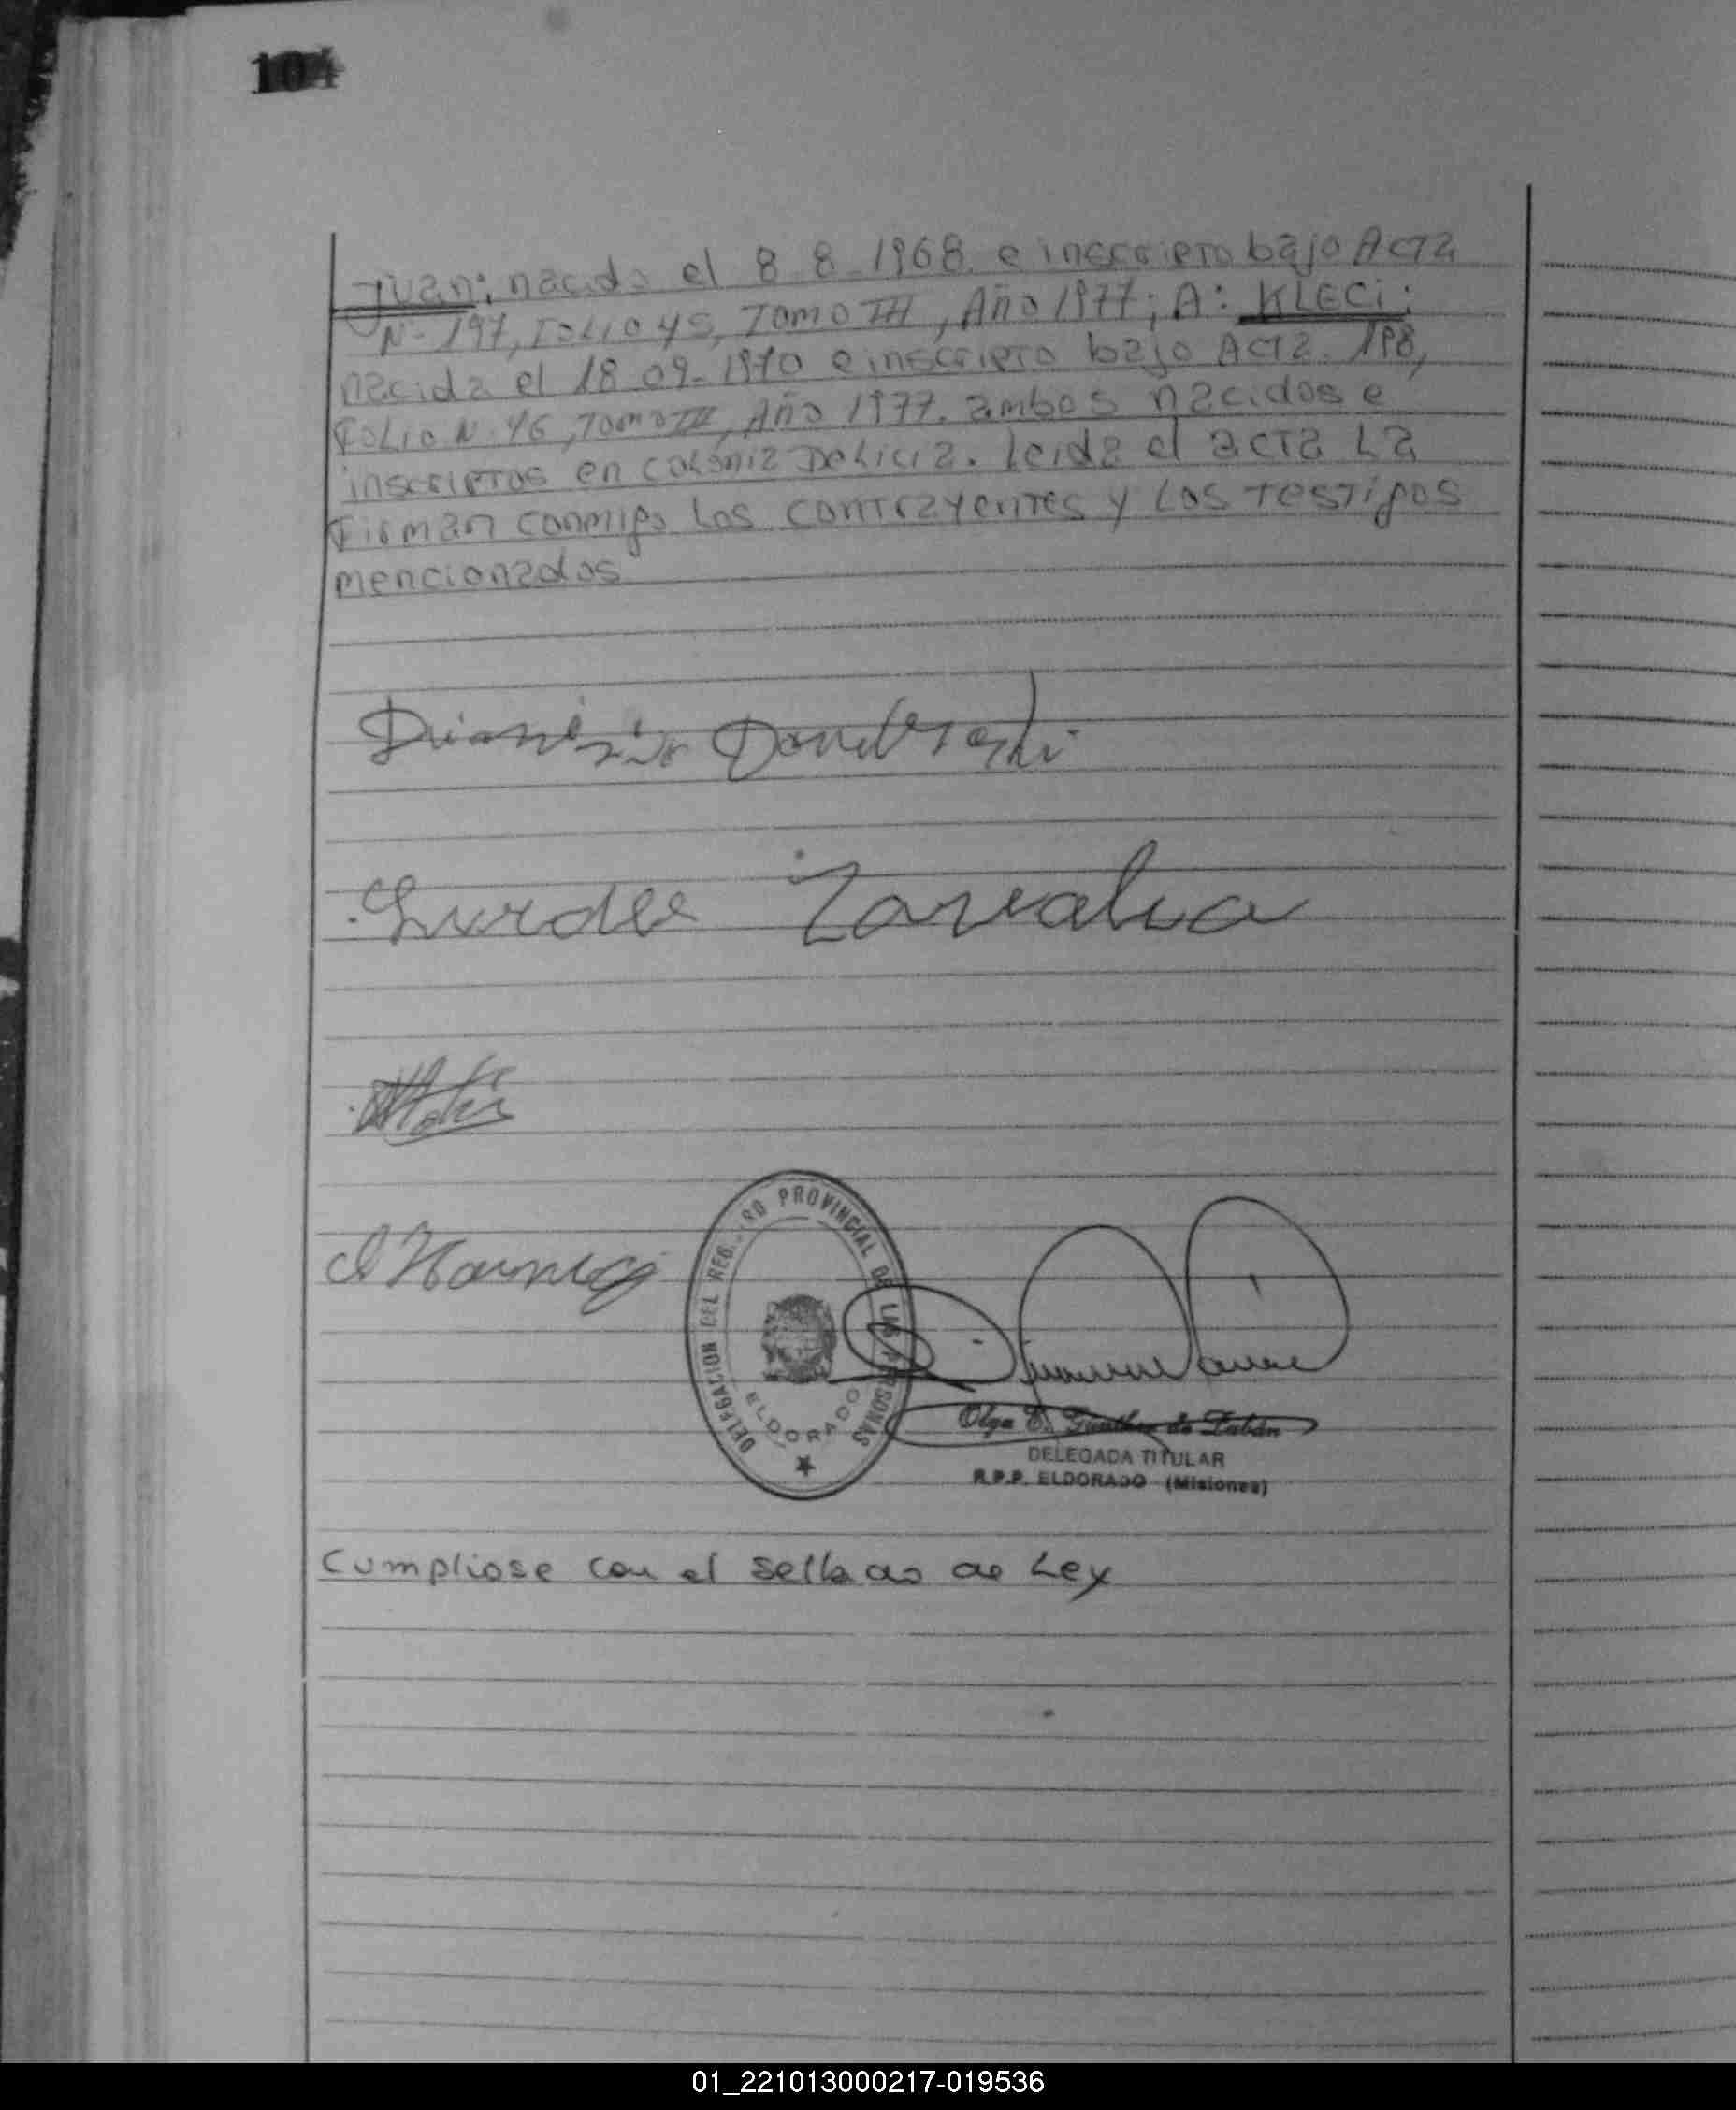 104
Juan; nacido el 8 8 1968 e inscripto bajo Acta
N- 197, Folio 45, Tomo III, Año 1977; A: KLECi;
nacida el 18 09-1970 e inscripto bajo Acta 198,
Folio N- 46, Tomo III, Año 1977. ambos nacidos e
inscriptos en Colonia Delicia. Leida el acta La
Firman conmigo Los contrayentes y Los Testigos
mencionados
Lurdes
DELEGACION DEL REG...RO PROVINCIAL DE LAS PERSONAS
ELDORADO
Olga E. de
DELEGADA TITULAR
R.P.P. ELDORADO (Misiones)
Cumpliose con el sellado de Ley
01_221013000217-019536